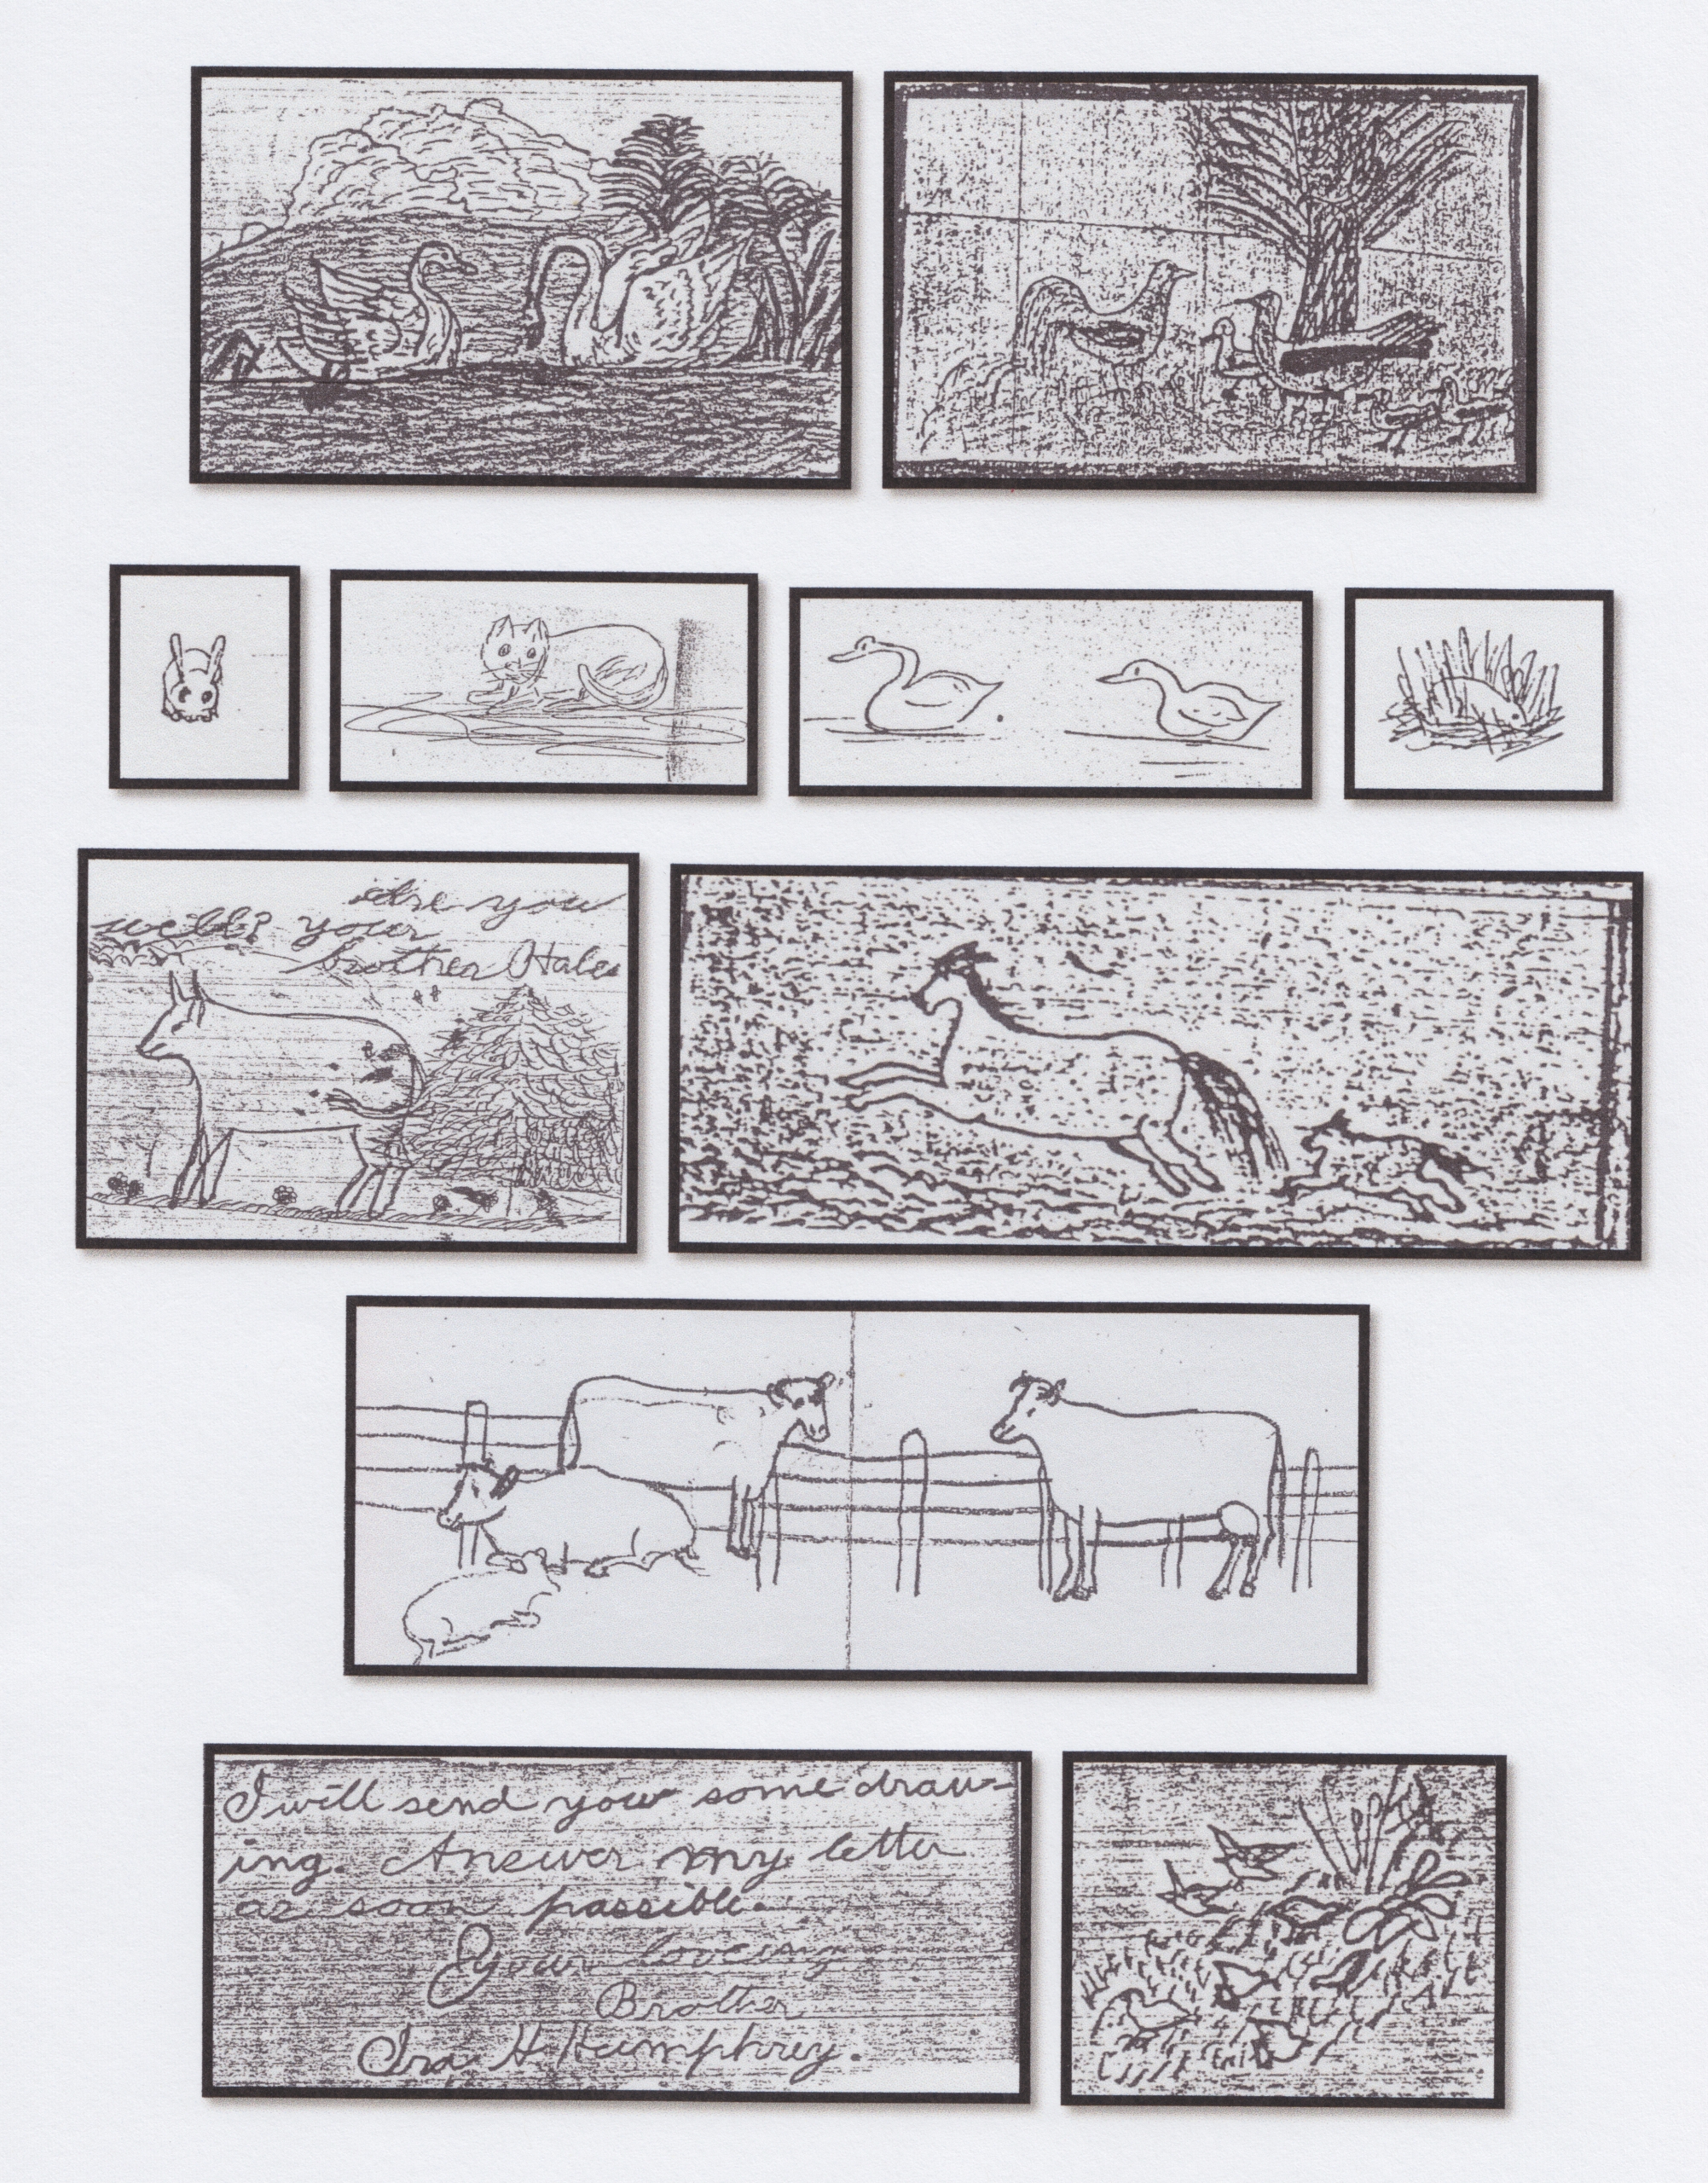 Are you
well? your
brother Hale
I will send you some draw-
ing. Answer my letter
as soon possible.
Your loveing
Brother
Ira H. Humphrey.